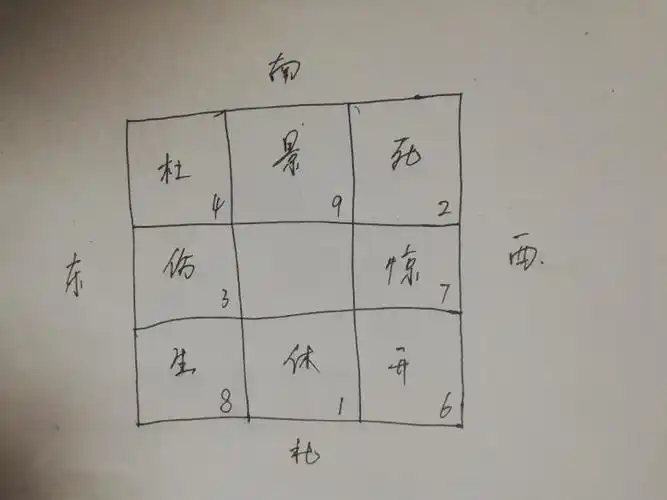 南
杜 景 死
4 9 2
东 伤 惊 西.
3 7
生 休 开
8 1 6
北